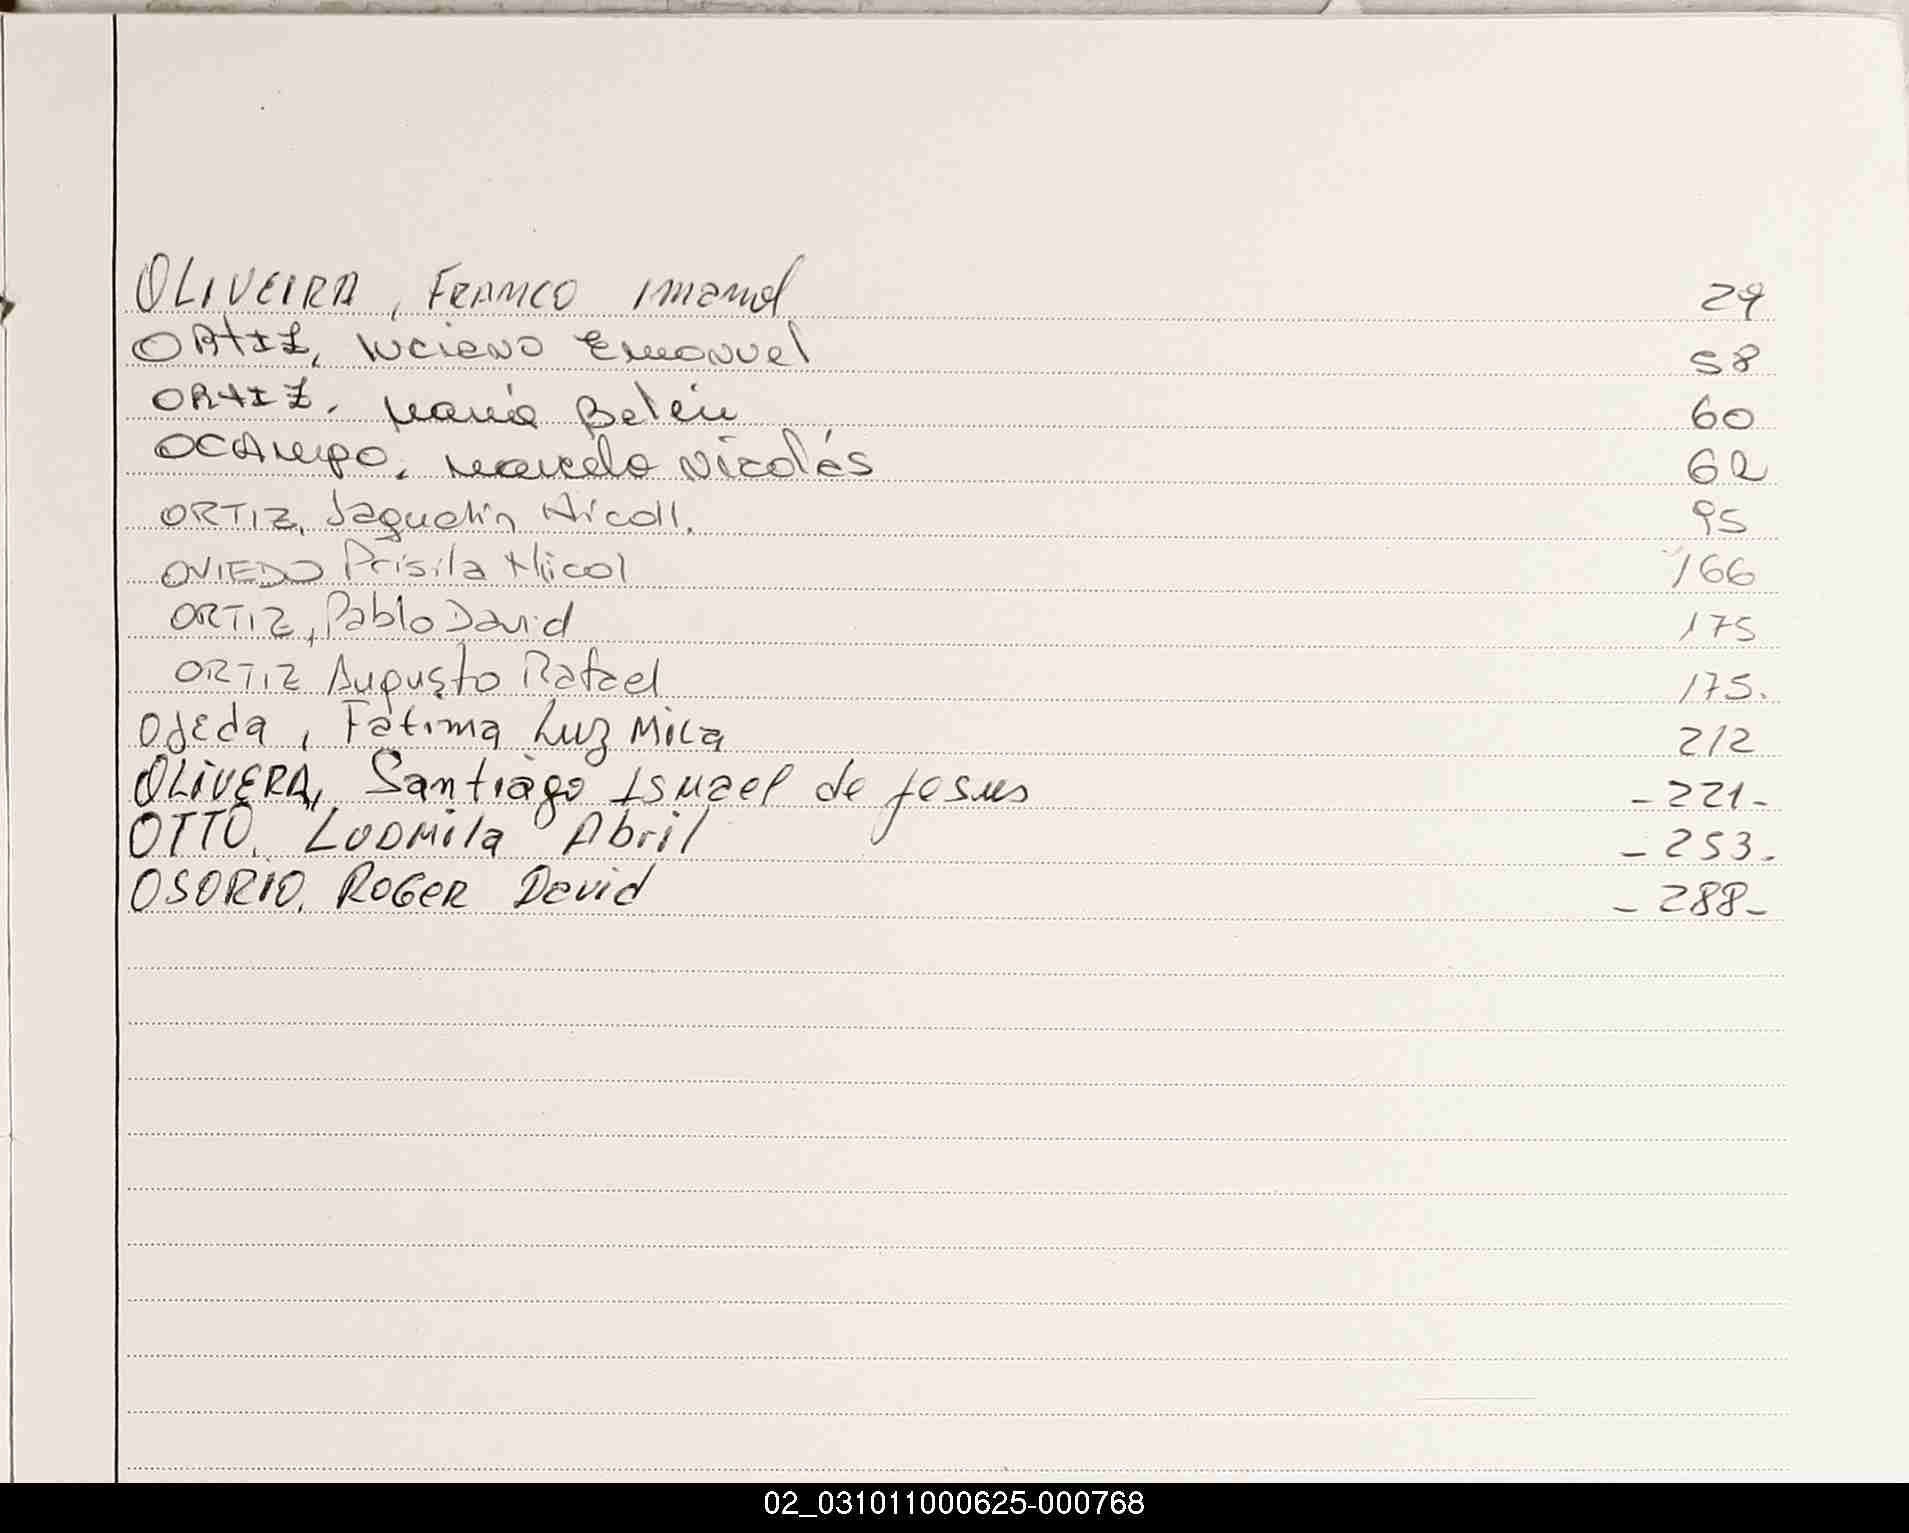 OLIVEIRA, FRANCO Imanol 29
ORTIZ, Luciano Emanuel 58
ORTIZ, María Belén 60
OCAMPO, Marcelo Nicolás 62
ORTIZ, Jaquelin Nicoll. 95
OVIEDO Prisila Nicol 166
ORTIZ, Pablo David 175
ORTIZ Augusto Rafael 175.
OJEda, Fátima Luz Mila 212
OLIVERA, Santiago Ismael de Jesus -221-
OTTO, LUDMila Abril -253.
OSORIO, ROGER David -288-
02_031011000625-000768